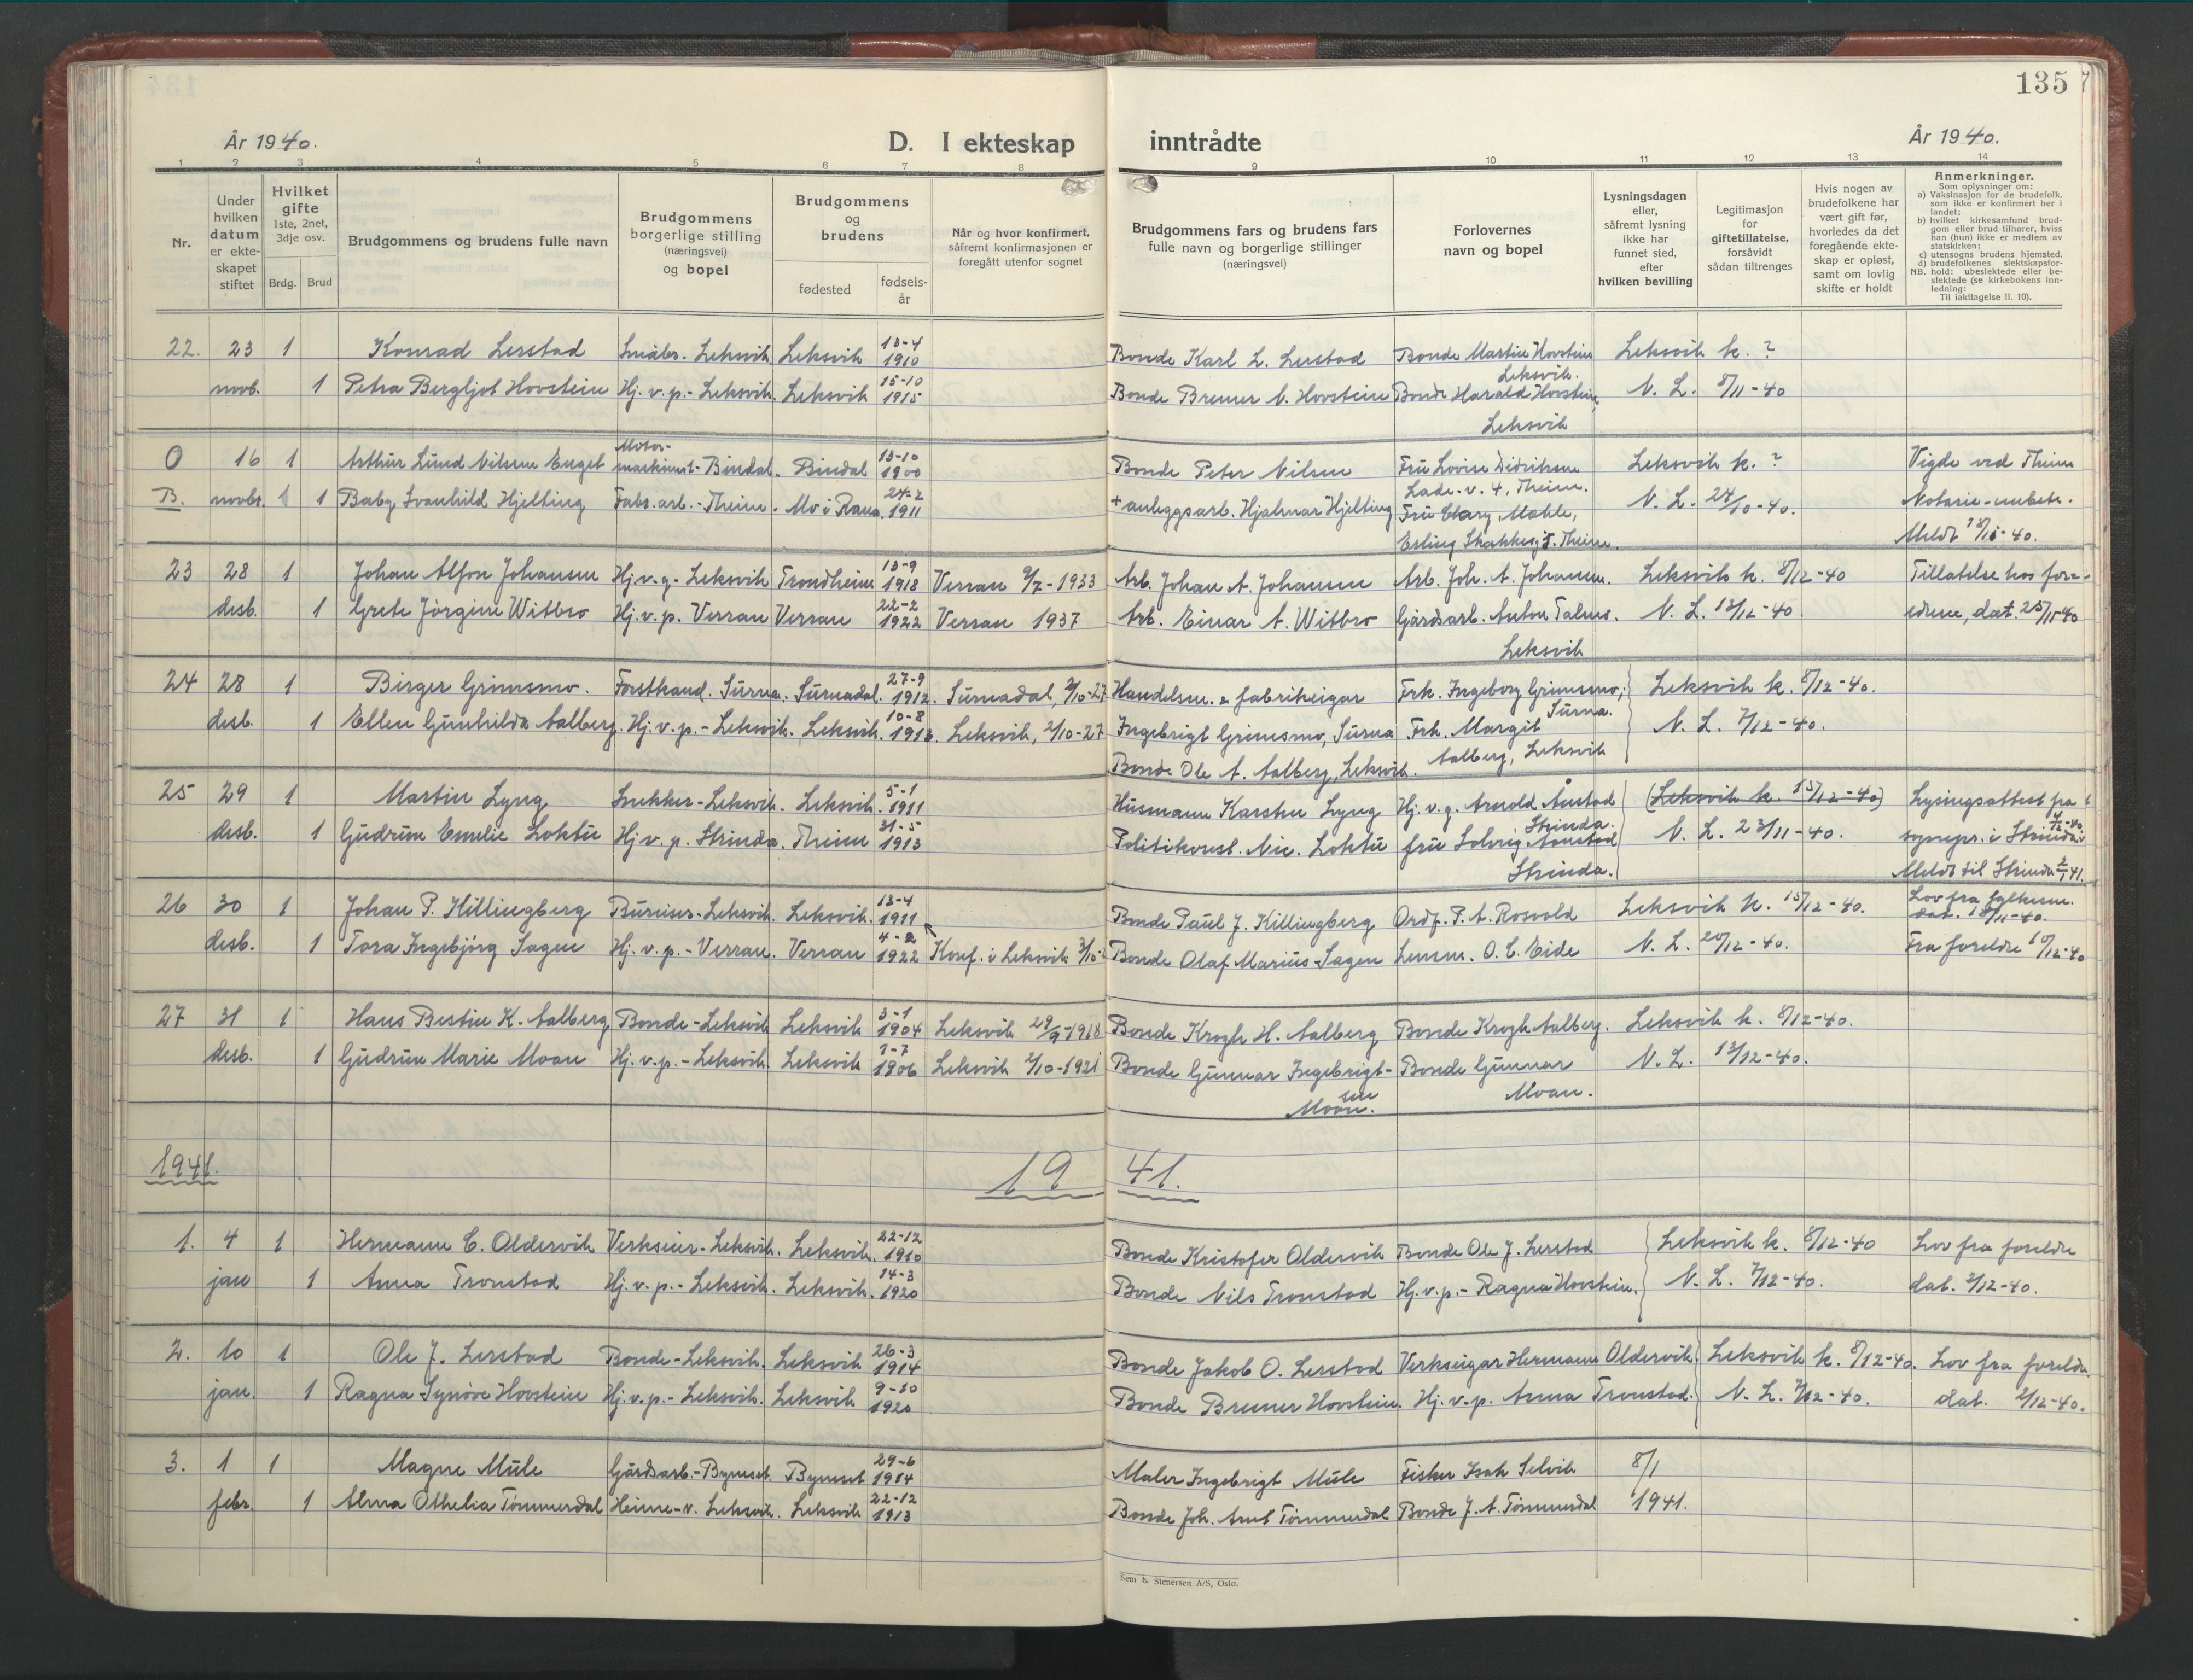 135
År 1940.
D. I ekteskap inntrådte
År 1940.
1 2 3 4 5 6 7 8 9 10 11 12 13 14
Nr.
Under hvilken datum er ekteskapet stiftet
Hvilket gifte 1ste, 2net, 3dje osv.
Brdg. Brud
Brudgommens og brudens fulle navn
Brudgommens borgerlige stilling (næringsvei) og bopel
Brudgommens og brudens
fødested
fødselsår
Når og hvor konfirmert, såfremt konfirmasjonen er foregått utenfor sognet
Brudgommens fars og brudens fars fulle navn og borgerlige stillinger (næringsvei)
Forlovernes navn og bopel
Lysningsdagen eller, såfremt lysning ikke har funnet sted, efter hvilken bevilling
Legitimasjon for giftetillatelse, forsåvidt sådan tiltrenges
Hvis nogen av brudefolkene har vært gift før, hvorledes da det foregående ekteskap er opløst, samt om lovlig skifte er holdt
Anmerkninger.
Som oplysninger om:
a) Vaksinasjon for de brudefolk, som ikke er konfirmert her i landet;
b) hvilket kirkesamfund brudgom eller brud tilhører, hviss han (hun) ikke er medlem av statskirken;
c) utensogns brudens hjemsted.
d) brudefolkenes slektskapsforhold: ubeslektede eller beslektede (se kirkebokens innledning:
NB.
Til iakttagelse II. 10).
22. 23 1 Konrad Lerstad Småbr. Leksvik. Leksvik 13-4 1910 Bonde Karl L. Lerstad Bonde Martin Hovstein Leksvik. Leksvik k. ?
novb. 1 Petra Bergljot Hovstein Hj. v. p. - Leksvik. Leksvik 15-10 1915 Bonde Bremer N. Hovstein Bonde Harald Hovstein, Leksvik N. L. 8/11-40
O 16 1 Arthur Lund Nilsen Enget Motormaskinist - Bindal. Bindal 13-10 1900 Bonde Peter Nilsen Fru Lovise Didriksen Lade-v. 4, Theim. Leksvik k. ? Vigde ved Theim
B. novbr. 1 Baby Svanhild Hjelting Fabr.arb. - Theim. Mo i Rana. 24-2 1911 + anleggsarb. Hjalmar Hjelting Fru Mæhle, N. L. 24/10-40. Notarie-embete.
Erling Skakkesg. Theim. Meldt
23 28 1 Johan Alfon Johansen Hj. v. g. - Leksvik Trondheim 13-9 1918 Verran 9/7-1933 Arb. Johan A. Johansen Arb. Joh. A. Johansen. Leksvik k. 8/12-40 Tillatelse hos for-
desb. 1 Grete Jörgine Witbro Hj. v. p. Verran Verran 22-2 1922 Verran 1937 Arb. Einar A. Witbro Gårdsarb. Anton Talmo. Leksvik N. L. 13/12-40. eldrene, dat. 25/11-40
24 28 1 Birger Grimsmo. Forstkand. Surna. Surnadal. 27-9 1912. Surnadal, 2/10-27 Handelsm. & fabrikeigar Frk. Ingeborg Grimsmo, Surna. Leksvik k. 8/12-40.
desb. 1 Ellen Gunhilda Aalberg. Hj. v. p. - Leksvik. Leksvik. 10-8 1913. Leksvik, 2/10-27 Ingebrigt Grimsmo, Surna Frk. Margit Aalberg, Leksvik N. L. 7/12-40.
Bonde Ole A. Aalberg, Leksvik.
25 29 1 Martin Lyng Snekker - Leksvik. Leksvik. 5-1 1911 Husmann Karsten Lyng Hj. v. g. Arnold Aunstad Strinda. (Leksvik k. 15/12-40) Lysingsattest fra
desb. 1 Gudrun Emelie Loktu Hj. v. p. Strinda. Theim 31-5 1913 Politikonst. Nic. Loktu fru Solveig Aunstad Strinda. N. L. 23/11-40. sognepr. i Strinda
Meldt til Strinda 2/1 41.
26 30 1 Johan P. Killingberg Bureiser - Leksvik. Leksvik. 13-4 1911 Bonde Paul J. Killingberg Ordf. P. A. Rosvold Leksvik k. 15/12-40. Lov fra fylkesm. dat.
desb. 1 Tora Ingebjörg Sagen Hj. v. p. - Verran. Verran 4-2 1922 Konf. i Leksvik Bonde Olaf Marius Sagen Lensm. O. C. Eide N. L. 20/12-40. Fra foreldre 10/12-40
27 31 1 Hans Bestin K. Aalberg Bonde - Leksvik Leksvik 3-1 1904 Leksvik 29/9-1918 Bonde Krogh H. Aalberg Bonde Krogh Aalberg. Leksvik k. 8/12-40.
desb. 1 Gudrun Marie Moan Hj. v. p. - Leksvik. Leksvik 7-7 1906 Leksvik 2/10-1921 Bonde Gunnar Ingebrigtsen Moan. Bonde Gunnar Moan. N. L. 13/12-40.
1941. 1941.
1. 4 1 Hermann C. Oldervik Verkseier - Leksvik. Leksvik. 22-12 1910 Bonde Kristofer Oldervik Bonde Ole J. Lerstad Leksvik k. 8/12-40 Lov fra foreldre
jan 1 Anna Tronstad Hj. v. p. - Leksvik. Leksvik. 14-3 1920 Bonde Nils Tronstad Hj. v. p. - Ragna Hovstein. N. L. 7/12-40. dat. 2/12-40.
2. 10 1 Ole J. Lerstad Bonde - Leksvik. Leksvik 26-3 1914 Bonde Jakob O. Lerstad Verkseigar Hermann Oldervik. Leksvik k. 8/12-40. Lov fra foreldre
jan. 1 Ragna Synöve Hovstein Hj. v. p. - Leksvik. Leksvik 9-10 1920 Bonde Bremer Hovstein. Hj. v. p. Anna Tronstad. N. L. 7/12-40. dat. 2/12-40.
3. 1 1 Magne Mule Gårdsarb. - Byneset. Byneset 29-6 1914 Maler Ingebrigt Mule Fisker Isak Selvik 8/1
febr. 1 Alma Othelia Tömmerdal Heime-v. Leksvik. Leksvik 22-12 1913 Bonde Joh. Arnt Tömmerdal Bonde J. A. Tömmerdal 1941.
Sem & Stenersen A/S, Oslo.